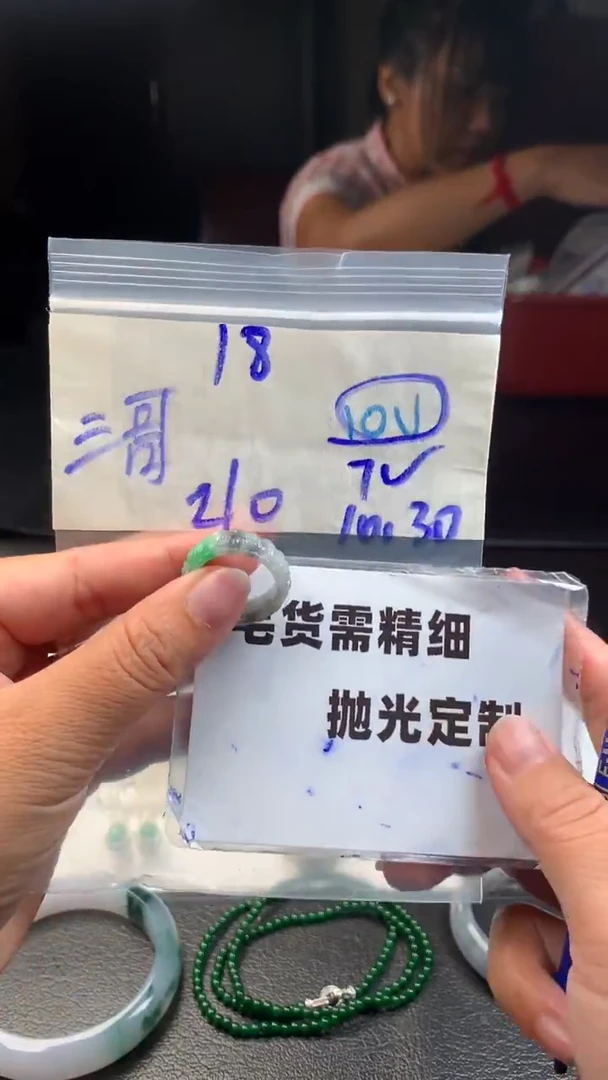 18
三哥
10V
7V
210
10.30
毛货需精细
抛光定制